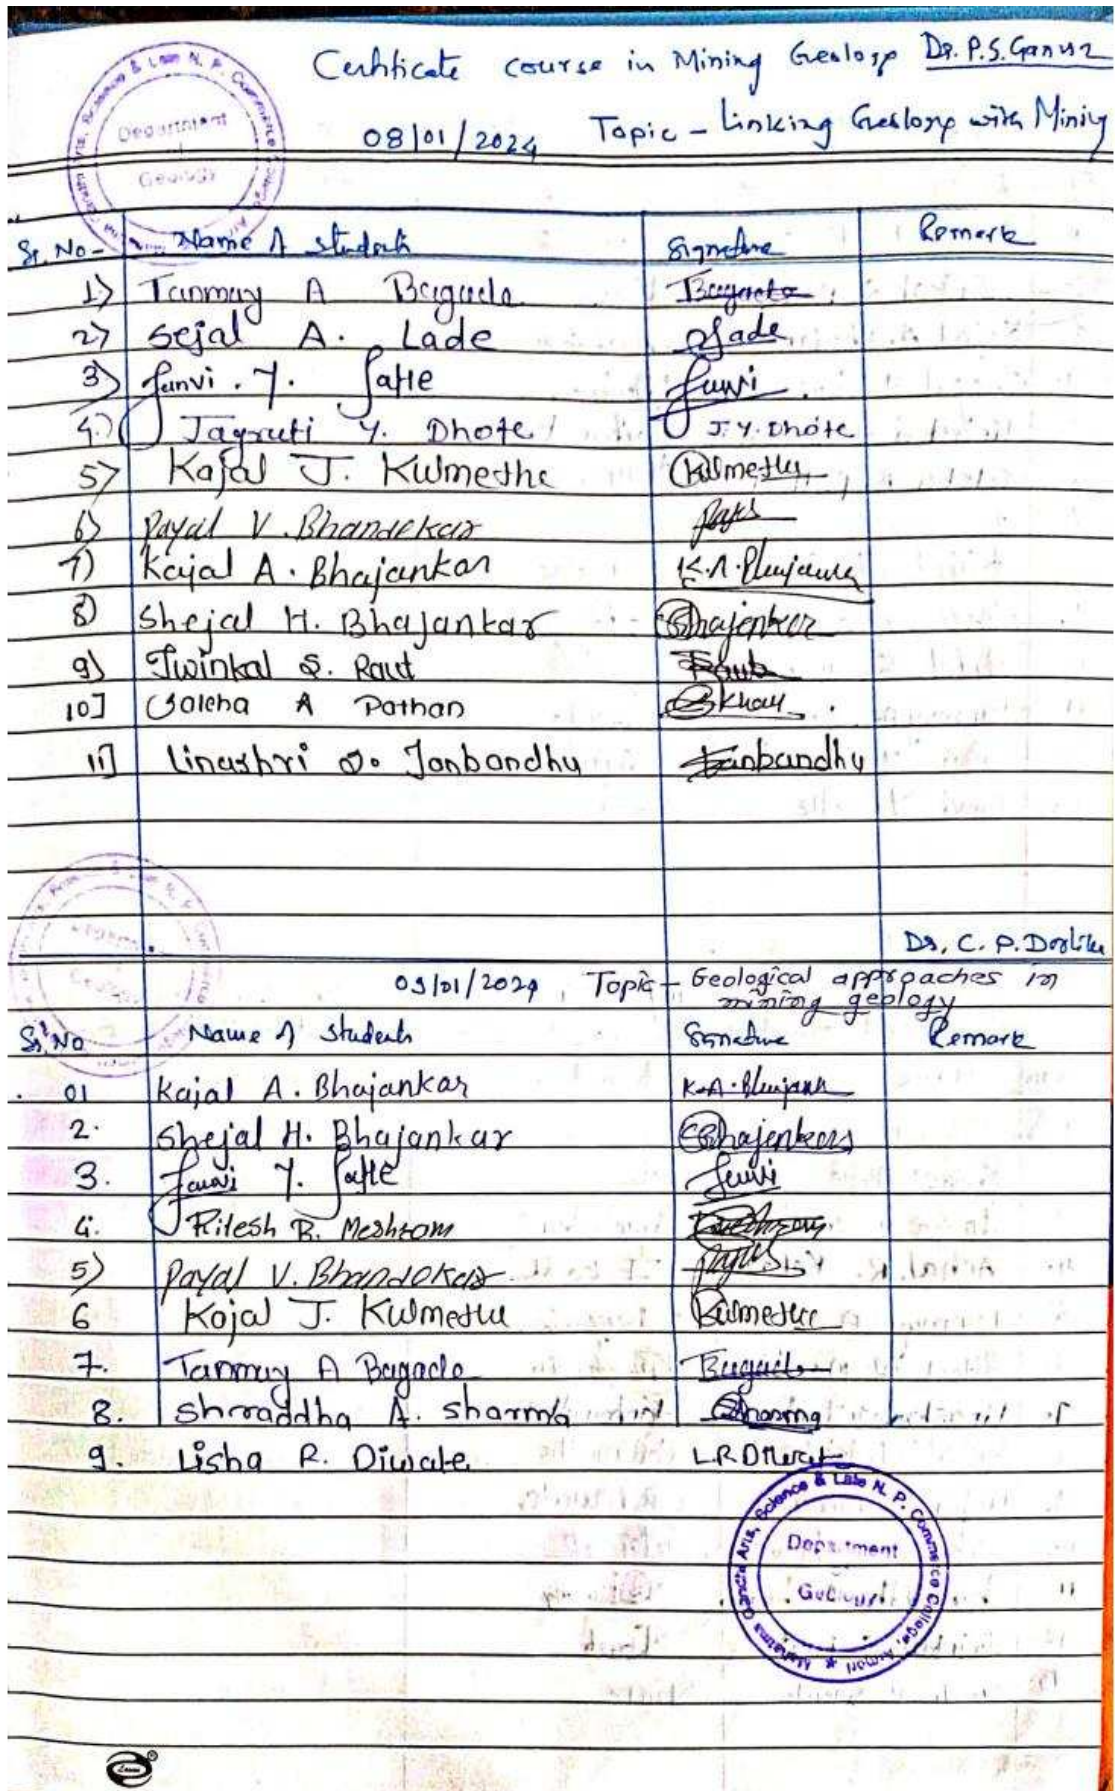 Certificate course in Mining Geology Dr. P.S. Ganvir
08/01/2024 Topic - Linking Geology with Mining
Department
Geology
Sr. No - Name of students Signature Remark
1) Tanmay A Bagade Bagade
2) Sejal A. Lade Lade
3) Janvi . Y. Satle Janvi
4.) Jagruti Y. Dhote J.Y. Dhote
5) Kajal J. Kulmethe Kulmethe
6) Payal V. Bhandekar Payal
7) Kajal A. Bhajankar K.A. Bhajankar
8) Shejal H. Bhajankar Bhajankar
9) Twinkal S. Raut Raut
10] Saleha A Pathan Khan
11] Linashri D. Janbandhu Janbandhu
Dr. C. P. Dorlikar
09/01/2024 Topic - Geological approaches in
mining geology
Sr. No Name of students Signature Remark
01 Kajal A. Bhajankar K.A. Bhajankar
2. Shejal H. Bhajankar Bhajankar
3. Janvi Y. Satle Janvi
4. Ritesh B. Meshram
5) Payal V. Bhandekar Payal
6 Kajal J. Kulmethe Kulmethe
7. Tanmay A Bagade Bagade
8. Shraddha A. Sharma Sharma
9. Lisha R. Diwate L.R Diwate
Mahatma Gandhi Arts, Science & Late N. P. Commerce College, Armori
Department
Geology